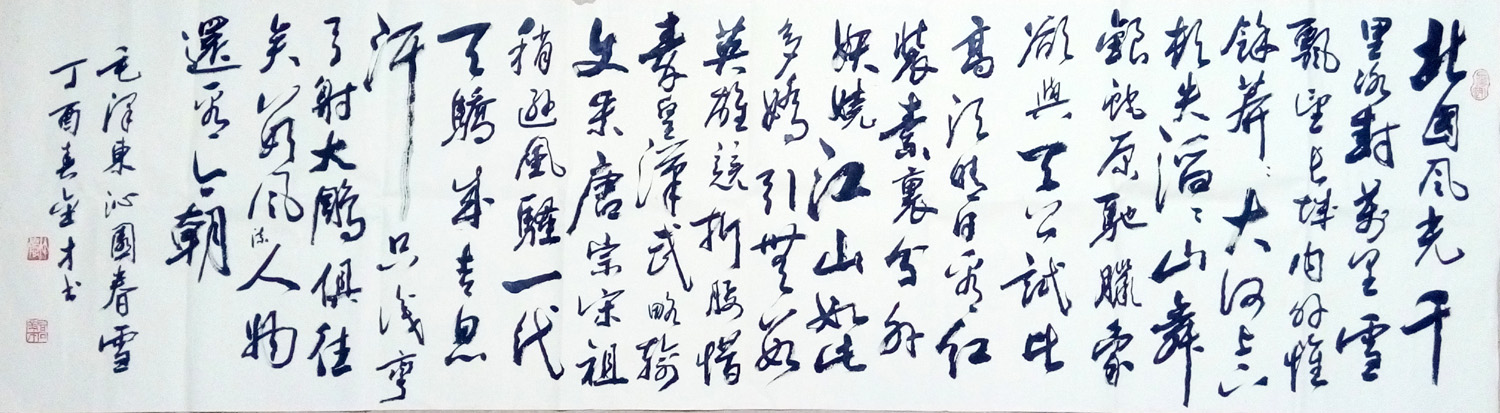 北國风光千
里冰封萬里雪
飘望长城内外惟
餘莽々大河上下
顿失滔々山舞
銀蛇原驰臘象
欲與天公試比
高须晴日看红
装素裹分外
妖娆江山如此
多嬌引無数
英雄競折腰惜
秦皇漢武略输
文采唐宗宋祖
稍逊風騷一代
天驕成吉思
汗只识弯
弓射大鵰俱往
矣数风流人物
還看今朝
毛泽東沁園春雪
丁酉春金才书